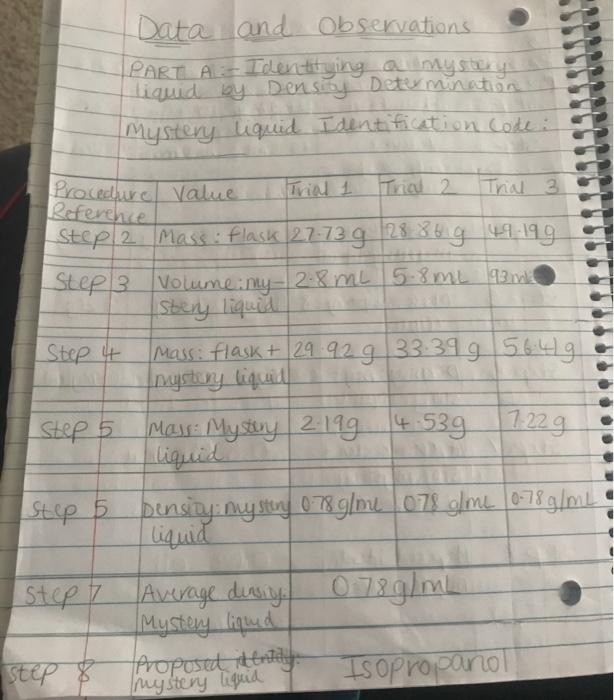 Data and Observations
PART A:- Identifying a mystery
liquid by Density Determination
Mystery liquid Identification Code:
Procedure Reference Value Trial 1 Trial 2 Trial 3
Step 2 Mass: flask 27.73 g 28.86 g 49.19g
Step 3 Volume: my- 2.8 mL 5.8 mL 93 mL
stery liquid
Step 4 Mass: flask + 29.92 g 33.39 g 56.41g
mystery liquid
Step 5 Mass: Mystery 2.19g 4.53g 7.22g
liquid
Step 5 Density: mystery 0.78 g/mL 0.78 g/mL 0.78 g/mL
liquid
Step 7 Average density: 0.78g/mL
Mystery liquid
Step 8 Proposed identity: Isopropanol
mystery liquid